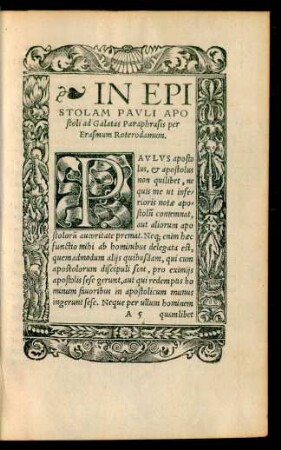 IN EPI
STOLAM PAVLI APO
stoli ad Galatas Paraphrasis per
Erasmum Roterodamum.
PAVLVS aposto
lus, & apostolus
non quilibet, ne
quis me ut infe-
rioris notæ apo-
stolū contemnat,
aut aliorum apo
stolorū autoritate premat. Neq; enim hæc
functio mihi ab hominibus delegata est,
quemadmodum alijs quibusdam, qui cum
apostolorum discipuli sint, pro eximijs
apostolis sese gerunt, aut qui redemptis ho
minum fauoribus in apostolicum munus
ingerunt sese. Neque per ullum hominem
A 5 quemlibet